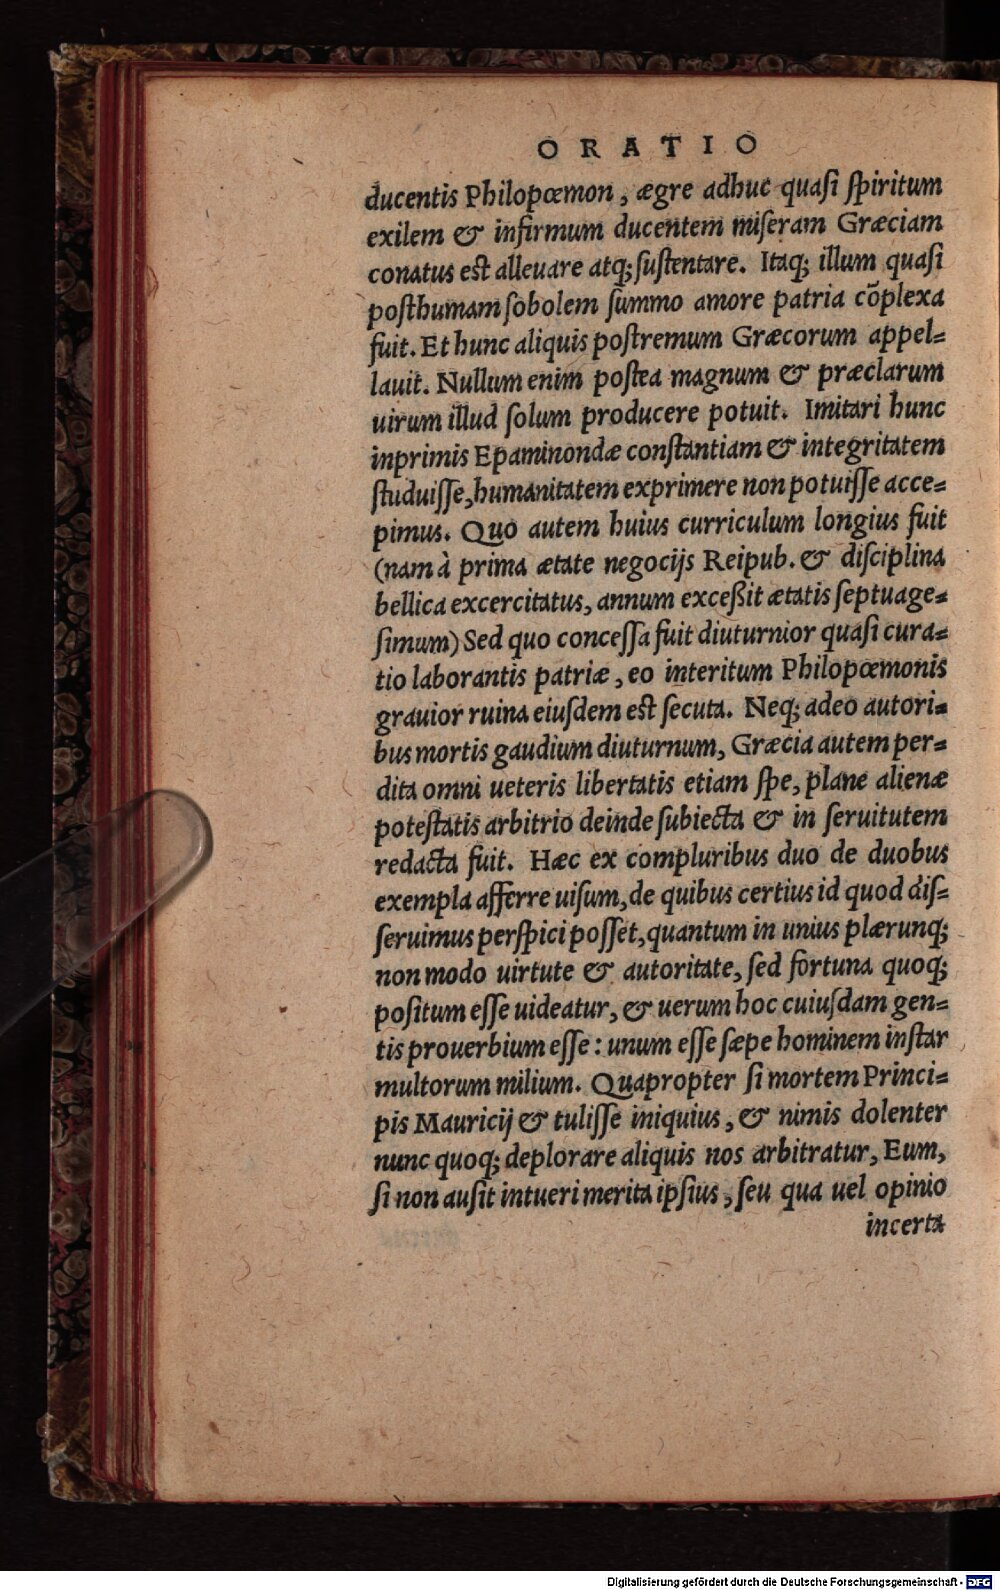 ORATIO
ducentis Philopœmon, ægre adhuc quasi spiritum
exilem & infirmum ducentem miseram Græciam
conatus est alleuare atq; sustentare. Itaq; illum quasi
posthumam sobolem summo amore patria cõplexa
fuit. Et hunc aliquis postremum Græcorum appel=
lauit. Nullum enim postea magnum & præclarum
uirum illud solum producere potuit. Imitari hunc
inprimis Epaminondæ constantiam & integritatem
studuisse, humanitatem exprimere non potuisse acce=
pimus. Quo autem huius curriculum longius fuit
(nam à prima ætate negocijs Reipub. & disciplina
bellica excercitatus, annum exceßit ætatis septuage=
simum) Sed quo concessa fuit diuturnior quasi cura=
tio laborantis patriæ, eo interitum Philopœmonis
grauior ruina eiusdem est secuta. Neq; adeo autori=
bus mortis gaudium diuturnum, Græcia autem per=
dita omni ueteris libertatis etiam spe, plane alienæ
potestatis arbitrio deinde subiecta & in seruitutem
redacta fuit. Hæc ex compluribus duo de duobus
exempla afferre uisum, de quibus certius id quod dis=
seruimus perspici posset, quantum in unius plærunq;
non modo uirtute & autoritate, sed fortuna quoq;
positum esse uideatur, & uerum hoc cuiusdam gen=
tis prouerbium esse: unum esse sæpe hominem instar
multorum milium. Quapropter si mortem Princi=
pis Mauricij & tulisse iniquius, & nimis dolenter
nunc quoq; deplorare aliquis nos arbitratur, Eum,
si non ausit intueri merita ipsius, seu qua uel opinio
incerta
Digitalisierung gefördert durch die Deutsche Forschungsgemeinschaft - DFG